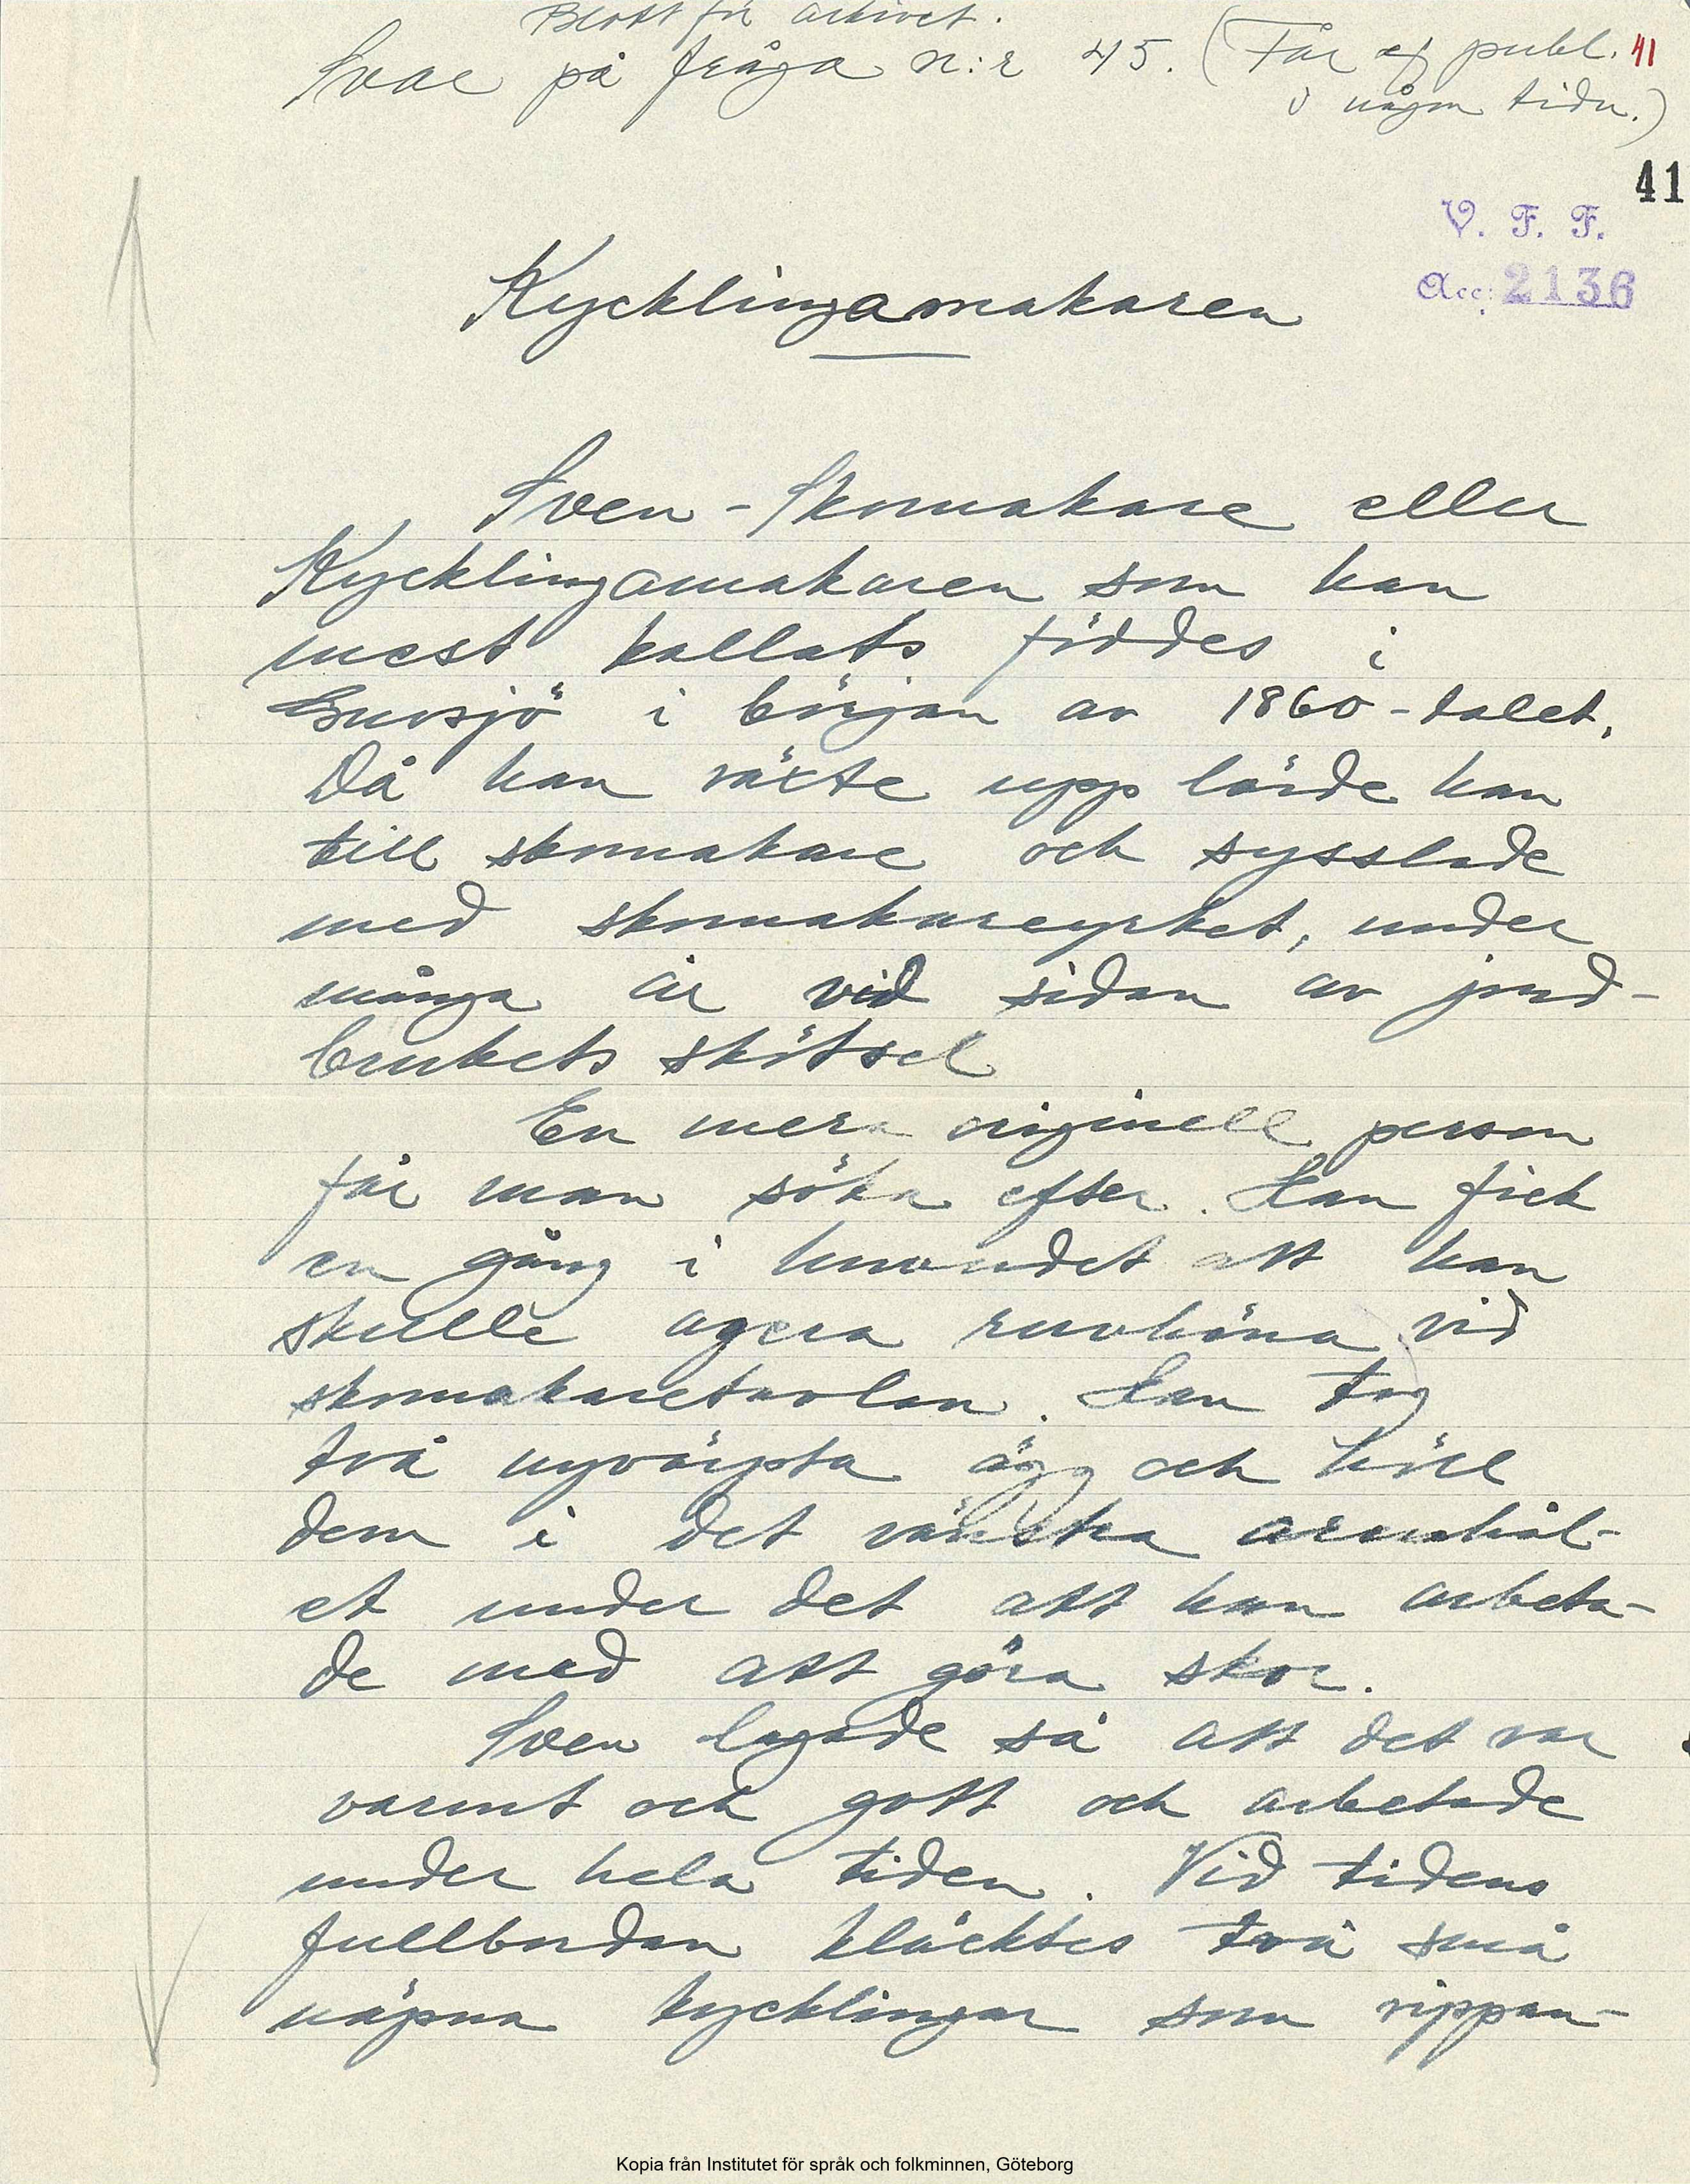 Blott för arkivet.
Svar på fråga n:r 45. (Får ej publ. 41
i någon tidn.)
41
V. F. F.
Acc: 2136
Kycklingamakaren
Sven-Skomakare eller
Kycklingamakaren som han
mest kallats föddes i
i början av 1860-talet.
Då han växte upp lärde han
till skomakare och sysslade
med skomakareyrket, under
många år vid sidan av jord-
brukets skötsel
En mera originell person
får man söka efter. Han fick
en gång i huvudet att han
skulle agera ruvhöna vid
skomakaretavlan. Han tog
två nyvärpta ägg och höll
dem i det vänstra armhål-
et under det att han arbeta-
de med att göra skor.
Sven lagade så att det var
varmt och gott och arbetade
under hela tiden. Vid tidens
fullbordan kläcktes två små
näpna kycklingar som
Kopia från Institutet för språk och folkminnen, Göteborg